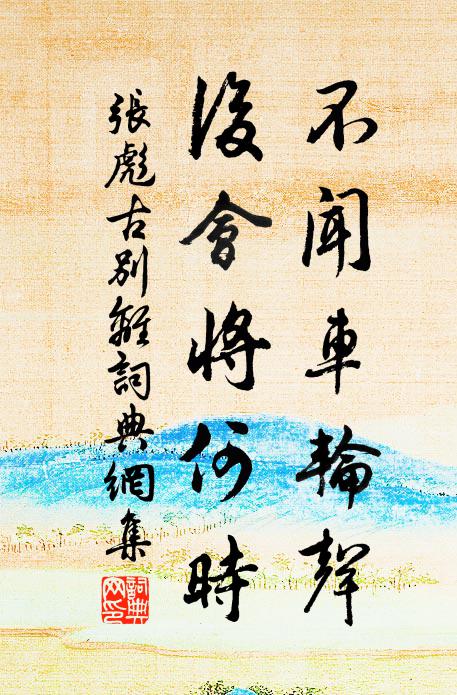 不聞車輪聲
後會將何時
張彪古別離詞典網集
詞典
网印